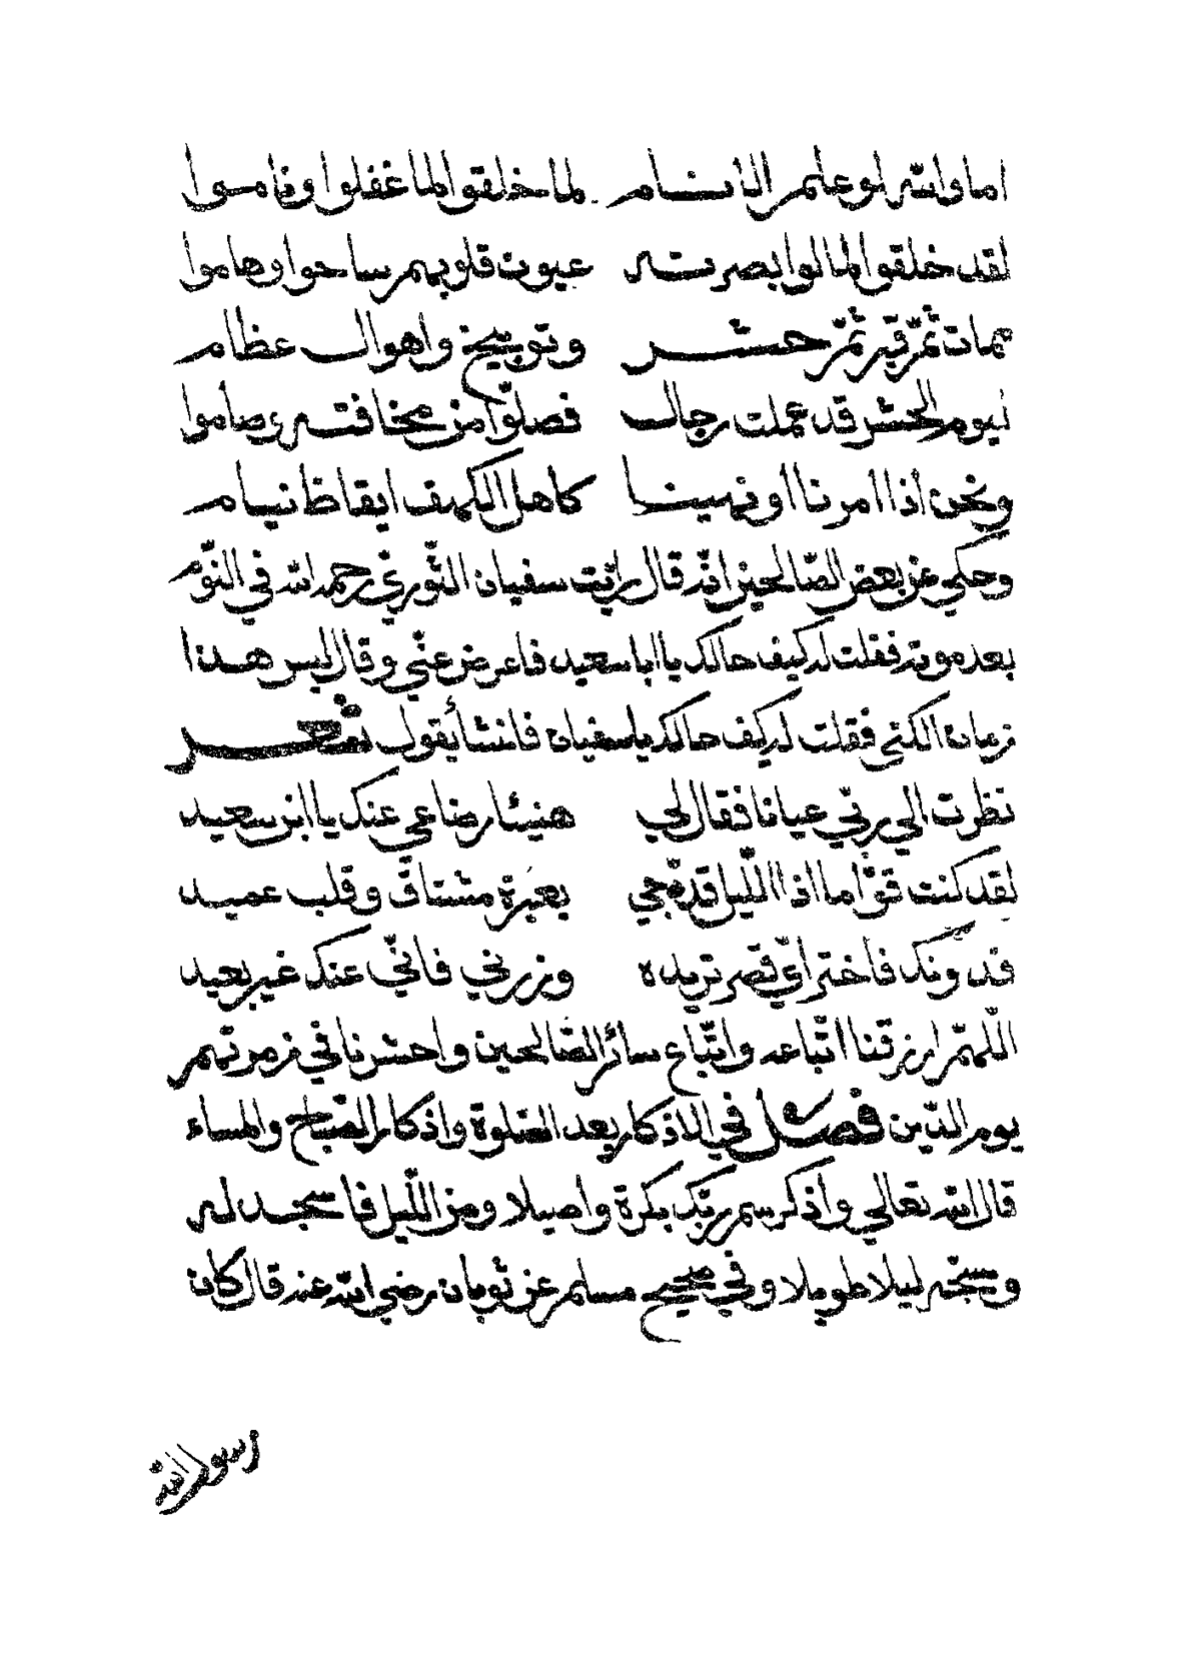 اما والله لو علم الانام لما خلقوا لما غفلوا وناموا
لقد خلقوا لما لو ابصرته عيون قلوبهم ساحوا وهاموا
ممات ثمّ قبر ثمّ حشر وتوبيخ واهوال عظام
ليوم الحشر قد عملت رجال فصلّوا من مخافته وصاموا
ونحن اذا امرنا او نهينا كاهل الكهف ايقاظ نيام
وحكي عن بعض الصّالحين انّه قال رايت سفيان الثّوريّ رحمه الله في النّوم
بعد موته فقلت له كيف حالك يا ابا سعيد فاعرض عنّي وقال ليس هذا
زمان الكنى فقلت له كيف حالك يا سفيان فانشأ يقول شعر
نظرت الي ربّي عيانا فقال لي هنيئا رضاءي عنك يا ابن سعيد
لقد كنت قوّاما اذا اللّيل قد دجي بعبرة مشتاق وقلب عميد
فدونك فاختر ايّ قصر تريده وزرني فانّي عنك غير بعيد
اللّهمّ ارزقنا اتّباعه واتّباع سائر الصّالحين واحشرنا في زمرتهم
يوم الدّين فصل في الاذكار بعد الصّلوة واذكار الصّباح والمساء
قال الله تعالي واذكر اسم ربّك بكرة واصيلا ومن اللّيل فاسجد له
وسبّحه ليلا طويلا وفي صحيح مسلم عن ثوبان رضي الله عنه قال كان
رسول الله